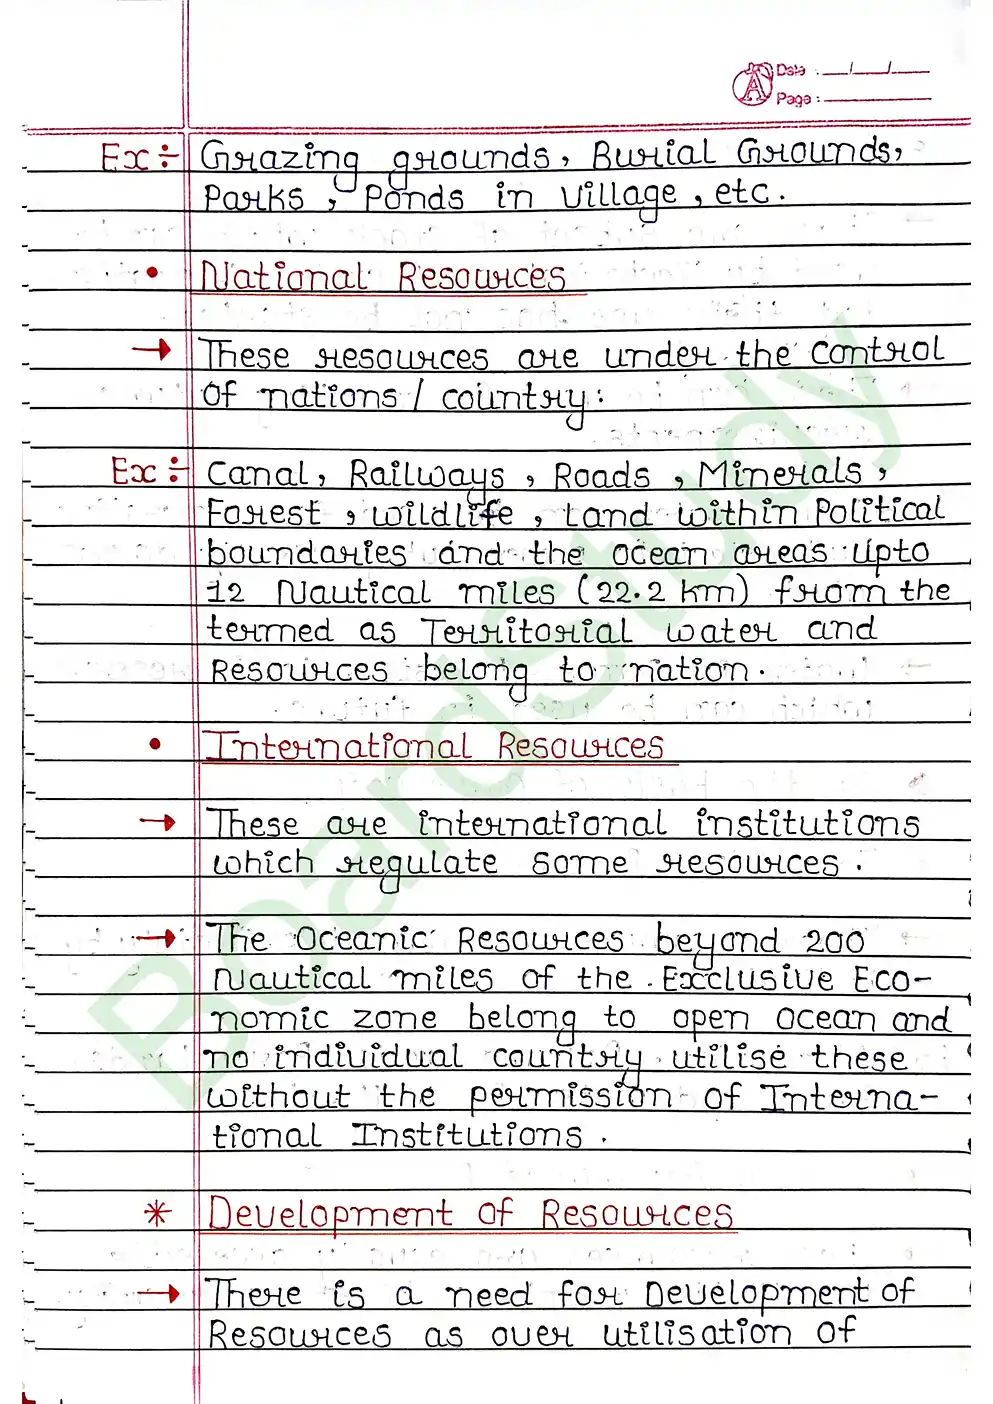 Date : __/__/__
Page : ________
Ex ÷ Grazing grounds, Burial Grounds,
Parks, Ponds in Village, etc.
• National Resources
→ These resources are under the control
of nations / country:
Ex ÷ Canal, Railways, Roads, Minerals,
Forest, wildlife, Land within Political
boundaries and the ocean areas upto
12 Nautical miles (22.2 km) from the
termed as Territorial water and
Resources belong to nation.
• International Resources
→ These are international institutions
which regulate some resources.
→ The Oceanic Resources beyond 200
Nautical miles of the Exclusive Eco-
nomic zone belong to open ocean and
no individual country utilise these
without the permission of Interna-
tional Institutions.
* Development of Resources
→ There is a need for Development of
Resources as over utilisation of
BoardStudy